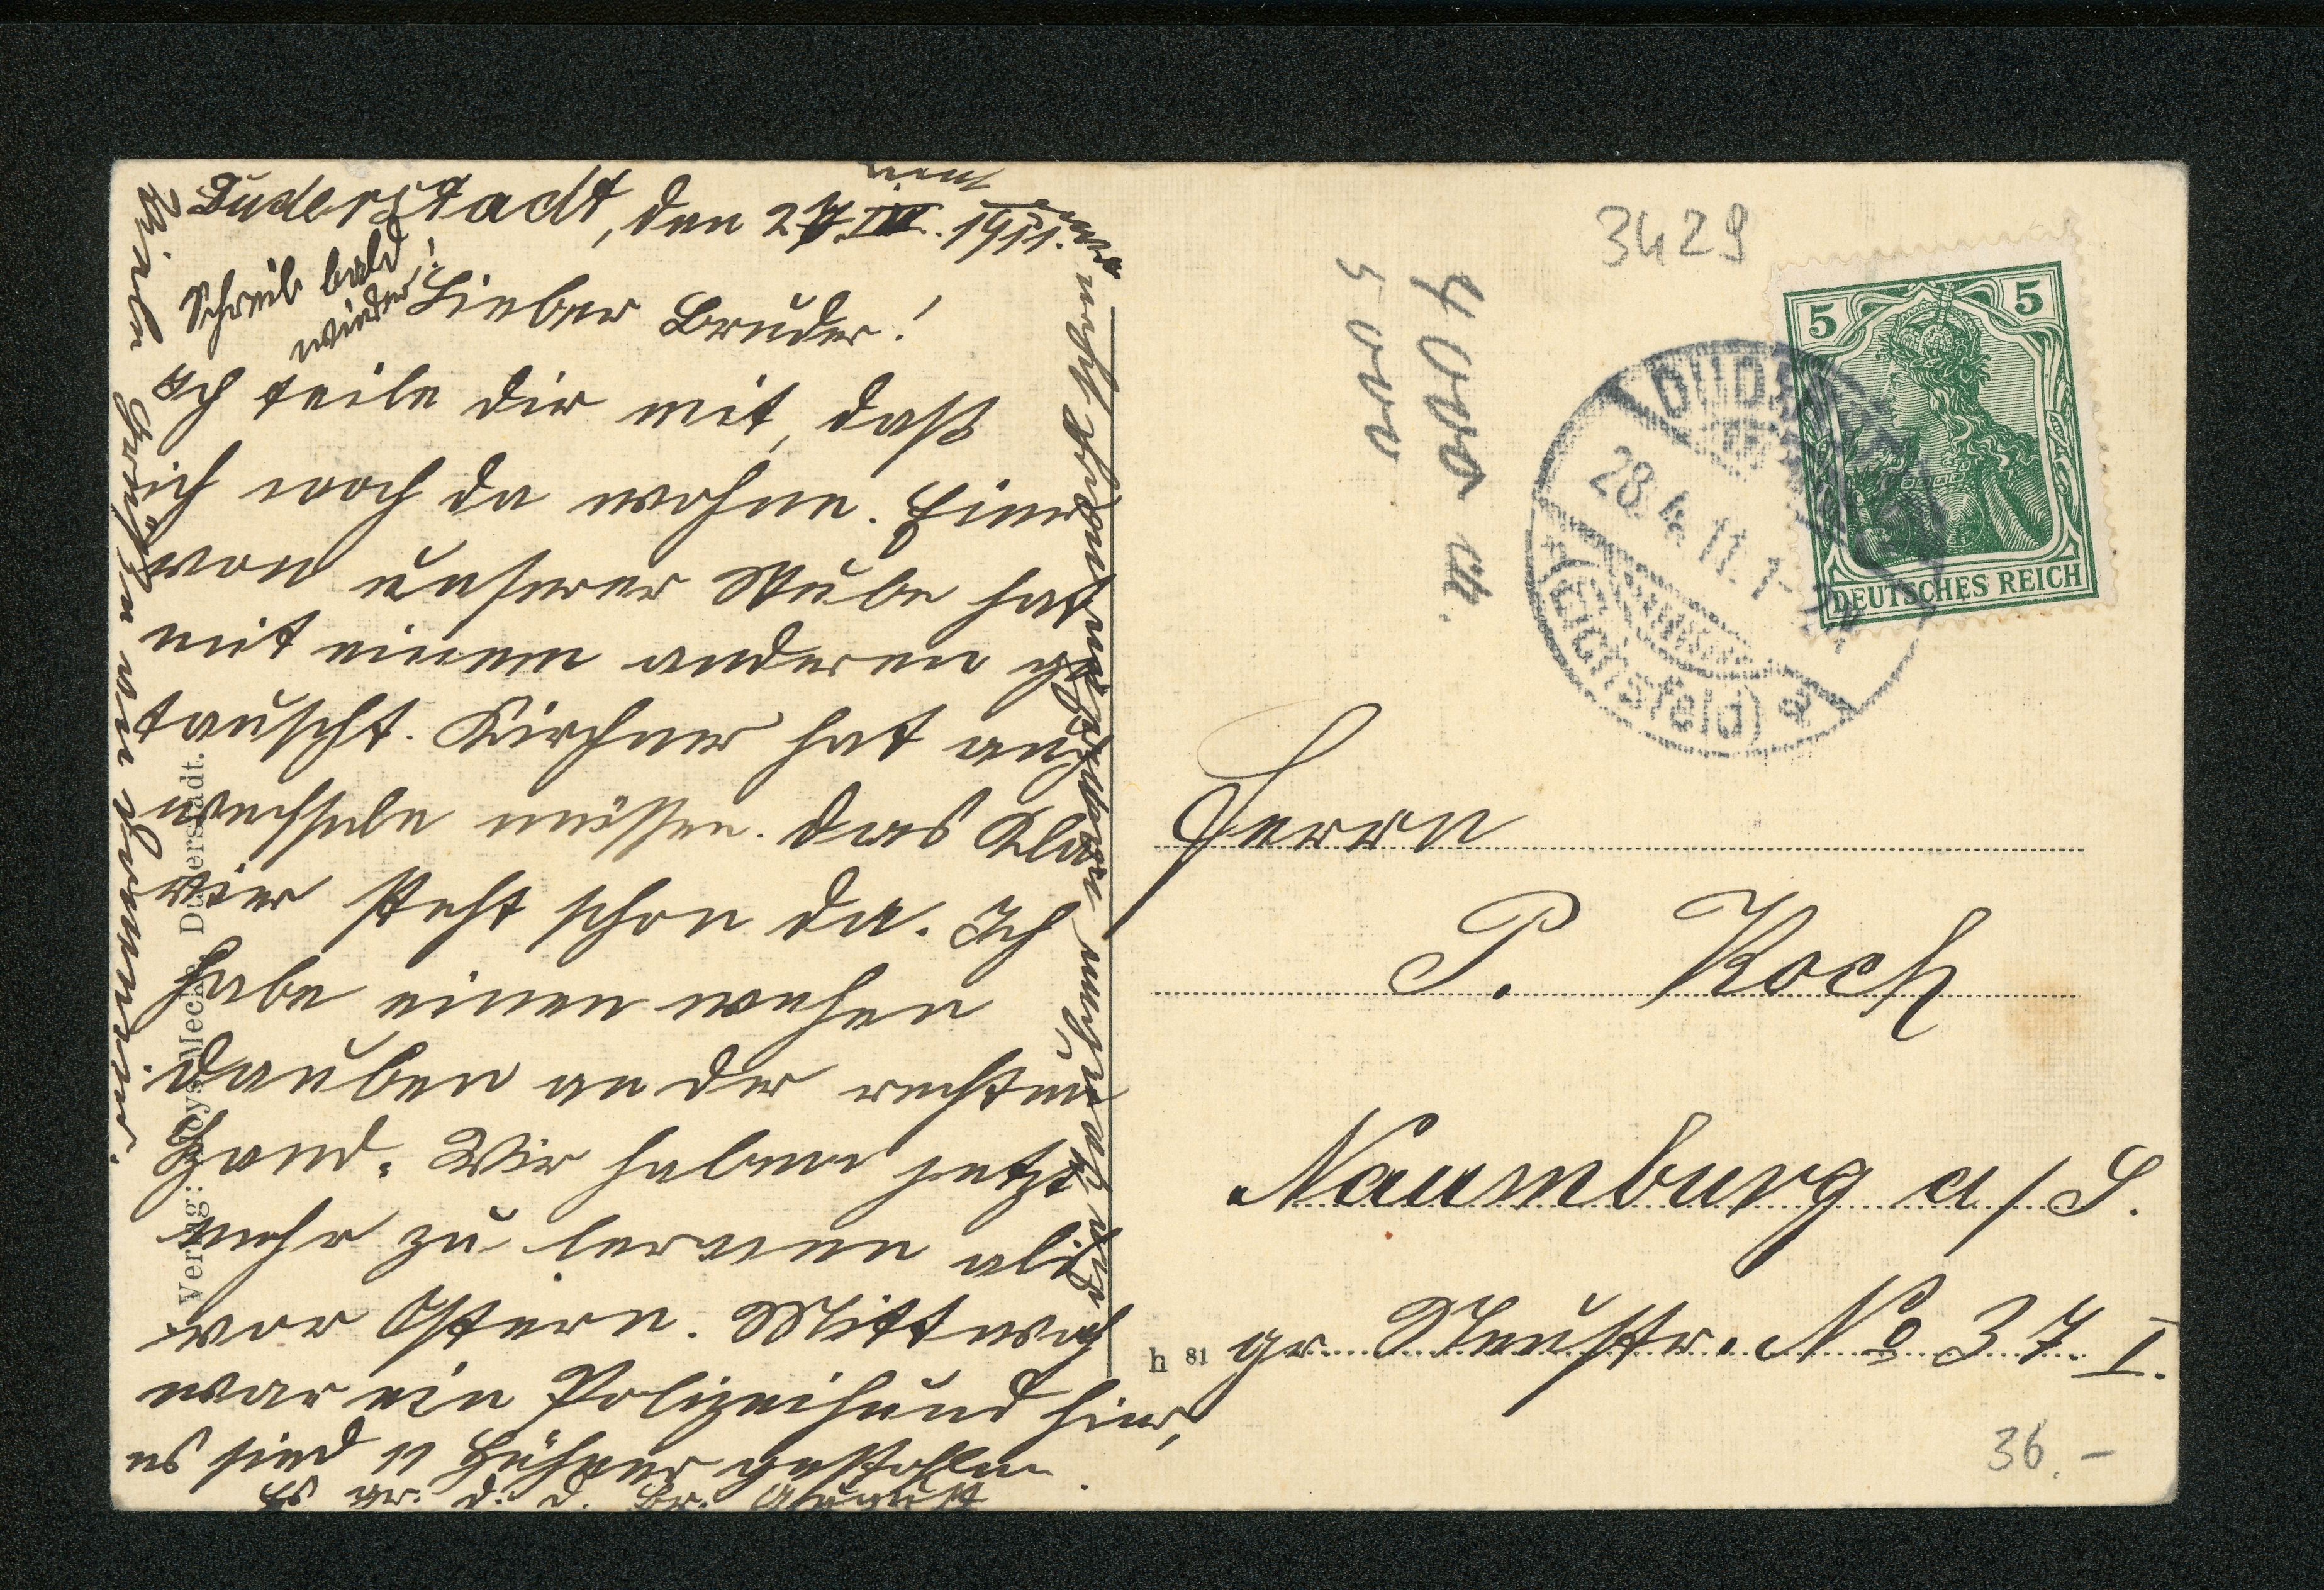 Duderstadt, den 27. IV. 1911.
Schreib bald
wieder!
Lieber Bruder!
Ich teile dir mit, daß
ich noch da wohne. Einer
von unserer Stube hat
mit einem anderen ge
tauscht. Kirchner hat auch
wechseln müssen. Das Kla
vier steht schon da. Ich
habe einen wehen
Dauben an der rechten
Hand. Wir haben jetzt
mehr zu lernen als
vor Ostern. Mittwoch
war ein Polizeihund hier,
es sind 11 Hühner gestohlen.
Es gr. d. d. Br. August
Viele Grüße an
Verlag: Aloys Mecke, Duderstadt.
3429
5 5
DEUTSCHES REICH
DUDERSTADT
28.4.11. 1-
(EICHSfeld)
a
Herrn
P. Koch
Naumburg a/S.
gr. Neustr. No 37 I.
h 81
36.-